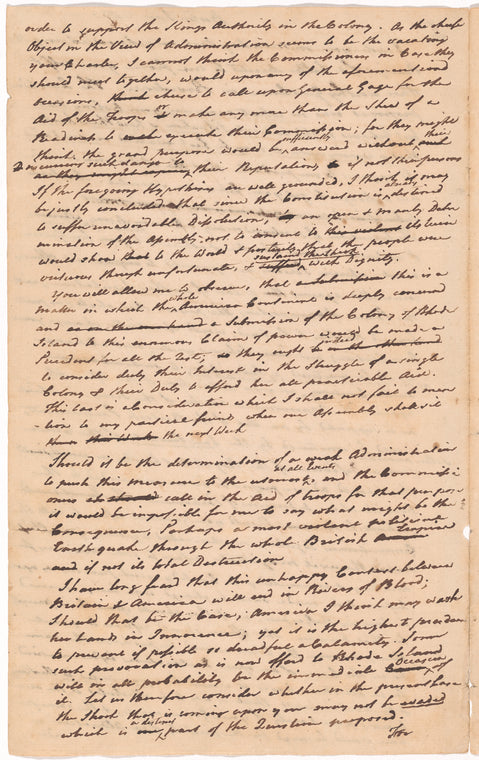 order to support the Kings Authority in the Colony. As the cheife
Object in the View of Administration seems to be the vacating
your Charter, I cannot think the Commissioners in Case they
should meet together, would upon any of the aforementioned
Occasions, chuse to call upon General Gage for the
Aid of the Troops or make any more than the Shew of a
Readiness to execute their Commission; for they might
think the grand purpose would be sufficiently answered without
their Reputation, if not their persons
If the foregoing Hypothesis are well grounded, I think it may
be justly concluded that since the Constitution is already destined
to suffer unavoidable Dissolution, an open & manly Deter
mination of the Assembly not to consent to its ruin
would show to the World & posterity that the people were
virtuous though unfortunate, & sustaind the Shock with Dignity.
You will allow me to observe, that this is a
matter in which the whole American Continent is deeply concernd
and a Submission of the Colony of Rhode
Island to this enormous Claim of power would be made a
Precedent for all the rest; they ought indeed
to consider deeply their Interest in the Struggle of a single
Colony & their Duty to afford her all practicable Aid.
This last is a Consideration which I shall not fail to men
tion to my particular friends when our Assembly shall sit
the next Week
Should it be the determination of a weak Administration
to push this measure to the utmost at all Events and the Commissi
oners call in the Aid of troops for that purpose
it would be impossible for me to say what might be the
Consequence, Perhaps a most violent political
Earthquake through the whole British Empire
and if not its total Destruction
I have long feard that this unhappy Contest between
Britain & America will end in Rivers of Blood;
Should that be the Case, America I think may wash
her hands in Innocence; yet it is the highest prudence
to prevent if possible so dreadful a Calamity. Some
such provocation as is now offerd to Rhode Island
will in all probability be the immediate Occasion of
it. Let us therefore consider whether in the present Case
the Shock that is coming upon you may not be evaded
which is a distinct part of the Question proposed
For